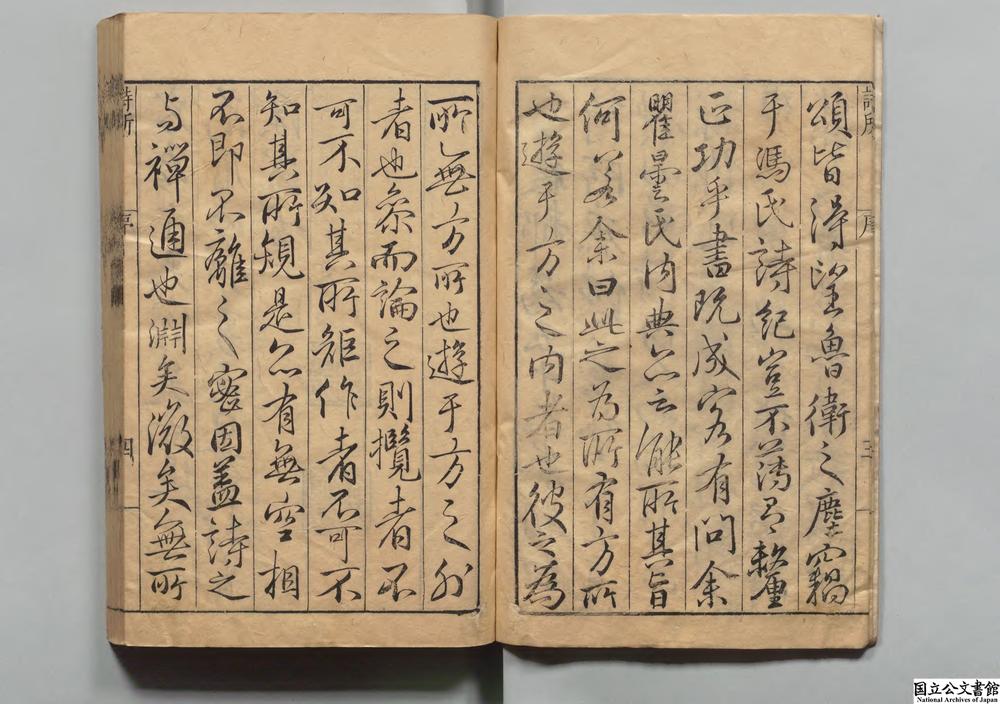 詩所 序 三
頌皆得望魯衛之塵竊
于馮氏詩紀豈不薄有釐
正功乎書既成客有問余
瞿曇氏内典亦云能所其旨
何若余曰此之為所有方所
也遊于方之内者也彼之為
所無方所也遊于方之外
者也參而論之則攬者不
可不知其所矩作者不可不
知其所規是亦有無空相
不即不離之密因蓋詩之
与禪通也淵矣微矣無所
詩所 序 四
国立公文書館
National Archives of Japan